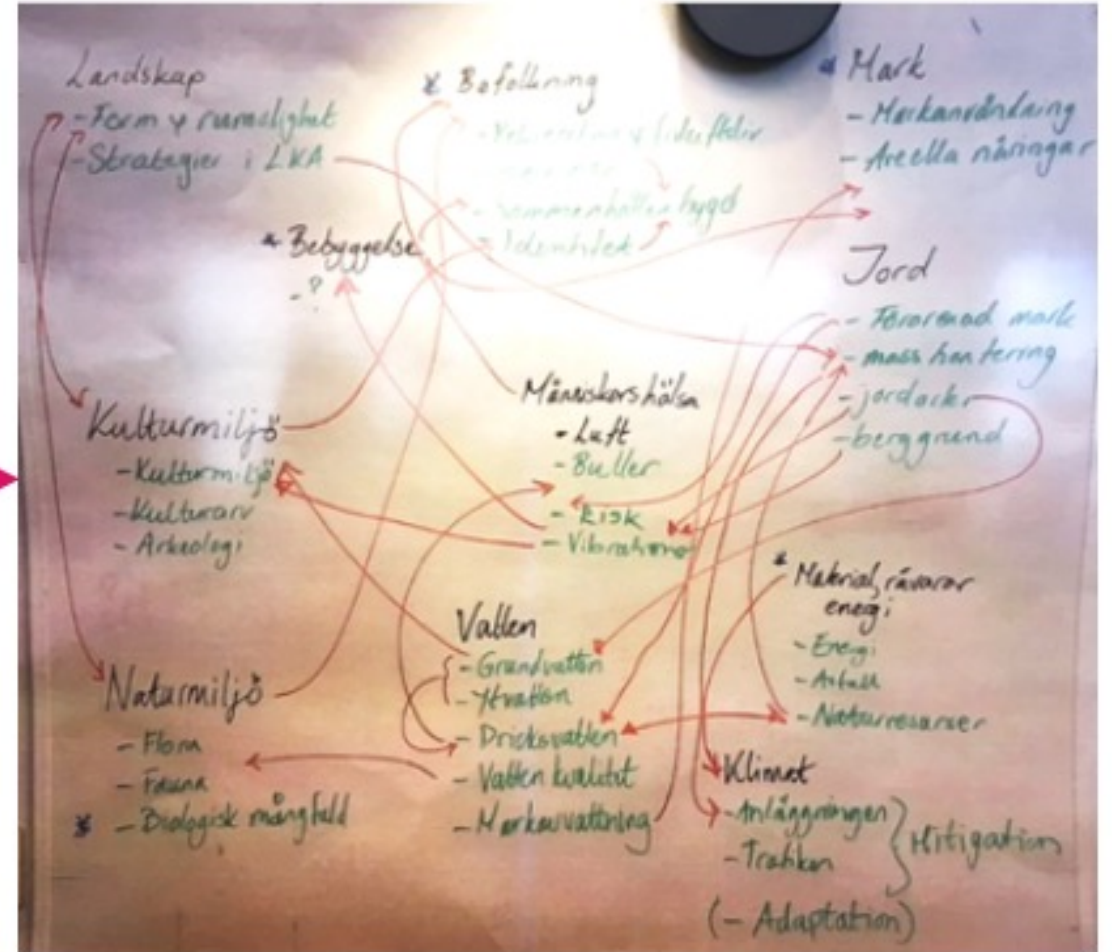 Landskap
- Form & rumslighet
- Strategier i LKA
* Befolkning
friluftsliv
- Sammanhållen bygd
- Identitet
* Mark
- Markanvändning
- Areella näringar
* Bebyggelse
- ?
Jord
- Förorenad mark
- masshantering
- jordarter
- berggrund
Kulturmiljö
- Kulturmiljö
- Kulturarv
- Arkeologi
Människors hälsa
- Luft
- Buller
- Risk
- Vibrationer
* Material, råvaror
energi
- Energi
- Avfall
- Naturresurser
Vatten
- Grundvatten
- Ytvatten
- Dricksvatten
- Vatten kvalitét
- Markavvattning
Naturmiljö
- Flora
- Fauna
* - Biologisk mångfald
Klimat
- Anläggningen
- Trafiken
Mitigation
(- Adaptation)